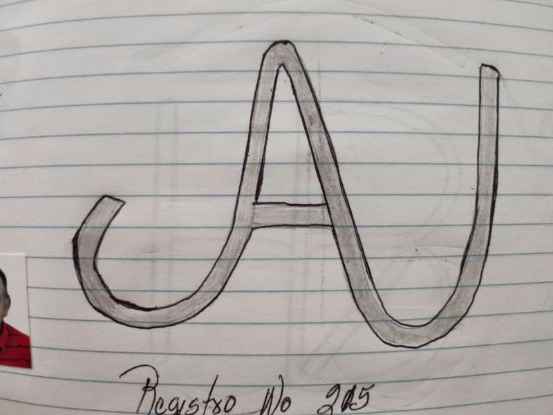 JAU
Registro No 205